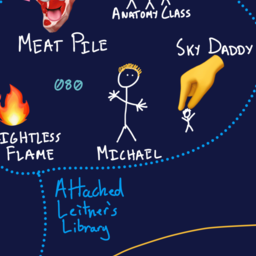 ANATOMY CLASS
MEAT PILE
SKY DADDY
080
IGHTLESS
FLAME
MICHAEL
Attached
Leitner's
Library